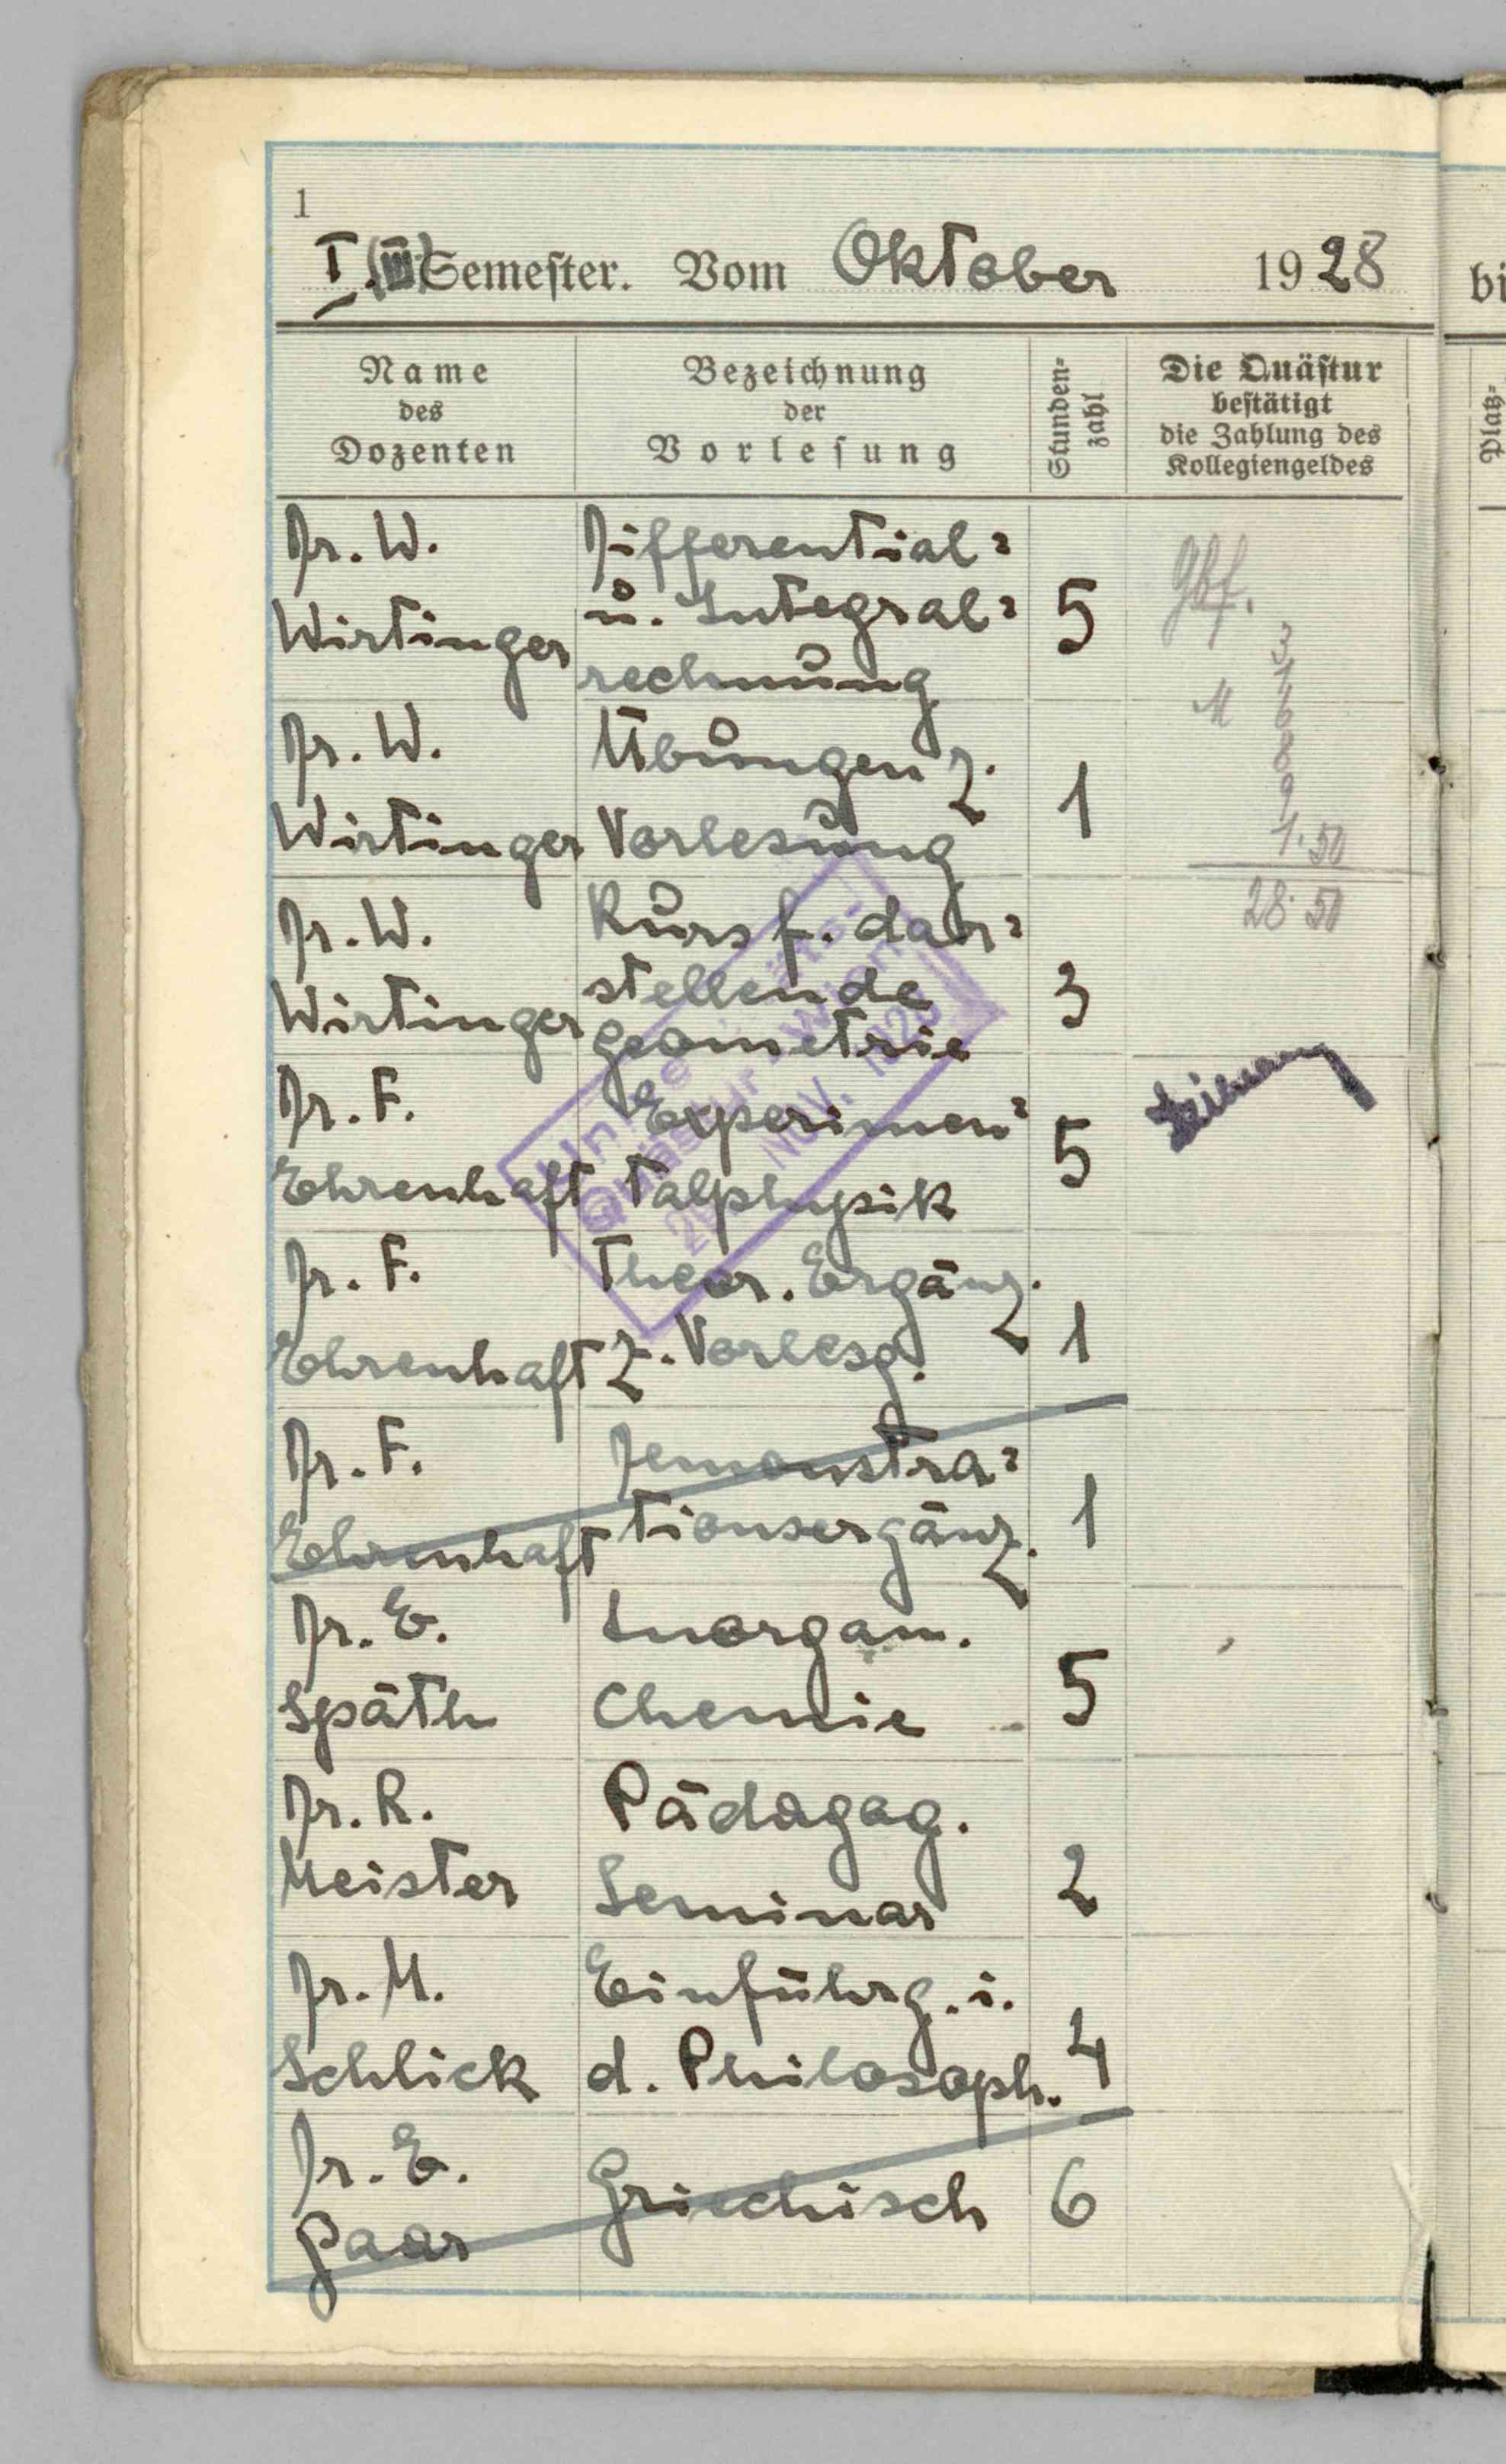 1
I. (III) Semester. Vom Oktober 1928
Name
des
Dozenten
Bezeichnung
der
Vorlesung
Stunden-
zahl
Die Quästur
bestätigt
die Zahlung des
Kollegiengeldes
Platz-
bi
Dr. W.
Wirtinger
Differential-
u. Integral-
rechnung
5
Dr. W.
Wirtinger
Übungen z.
Vorlesung
1
Dr. W.
Wirtinger
Kurs f. dar-
stellende
Geometrie
3
Dr. F.
Ehrenhaft
Experimen-
talphysik
5
Dr. F.
Ehrenhaft
Theor. Ergänz.
z. Vorlesg.
1
Dr. F.
Ehrenhaft
Demonstra-
tionsergänz.
1
Dr. E.
Späth
Anorgan.
Chemie
5
Dr. R.
Meister
Pädagog.
Seminar
2
Dr. M.
Schlick
Einführg. i.
d. Philosoph.
4
Dr. E.
Gaar
Griechisch
6
3
1
M 6
8
9
1.50
28.50
Quästur Wien
NOV. 1928